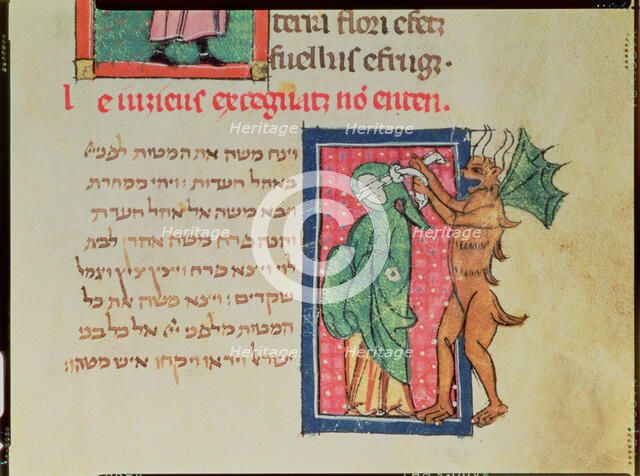 terra flori e fetz
fuellus e frugz.
le iuzieus excegatz no enten.
וינח משה את המטות לפני
באהל העדות : ויהי ממחרת
ויבא משה אל אהל העדות
והנה פרח אהרן לבית
לוי ויצא פרח ויצץ ציץ ויגמל
שקדים : ויצא משה את כל
המטות מלפני אל כל בני
ישראל ויראו ויקחו איש מטהו :
Heritage Heritage
Heritage Heritage
Heritage Heritage